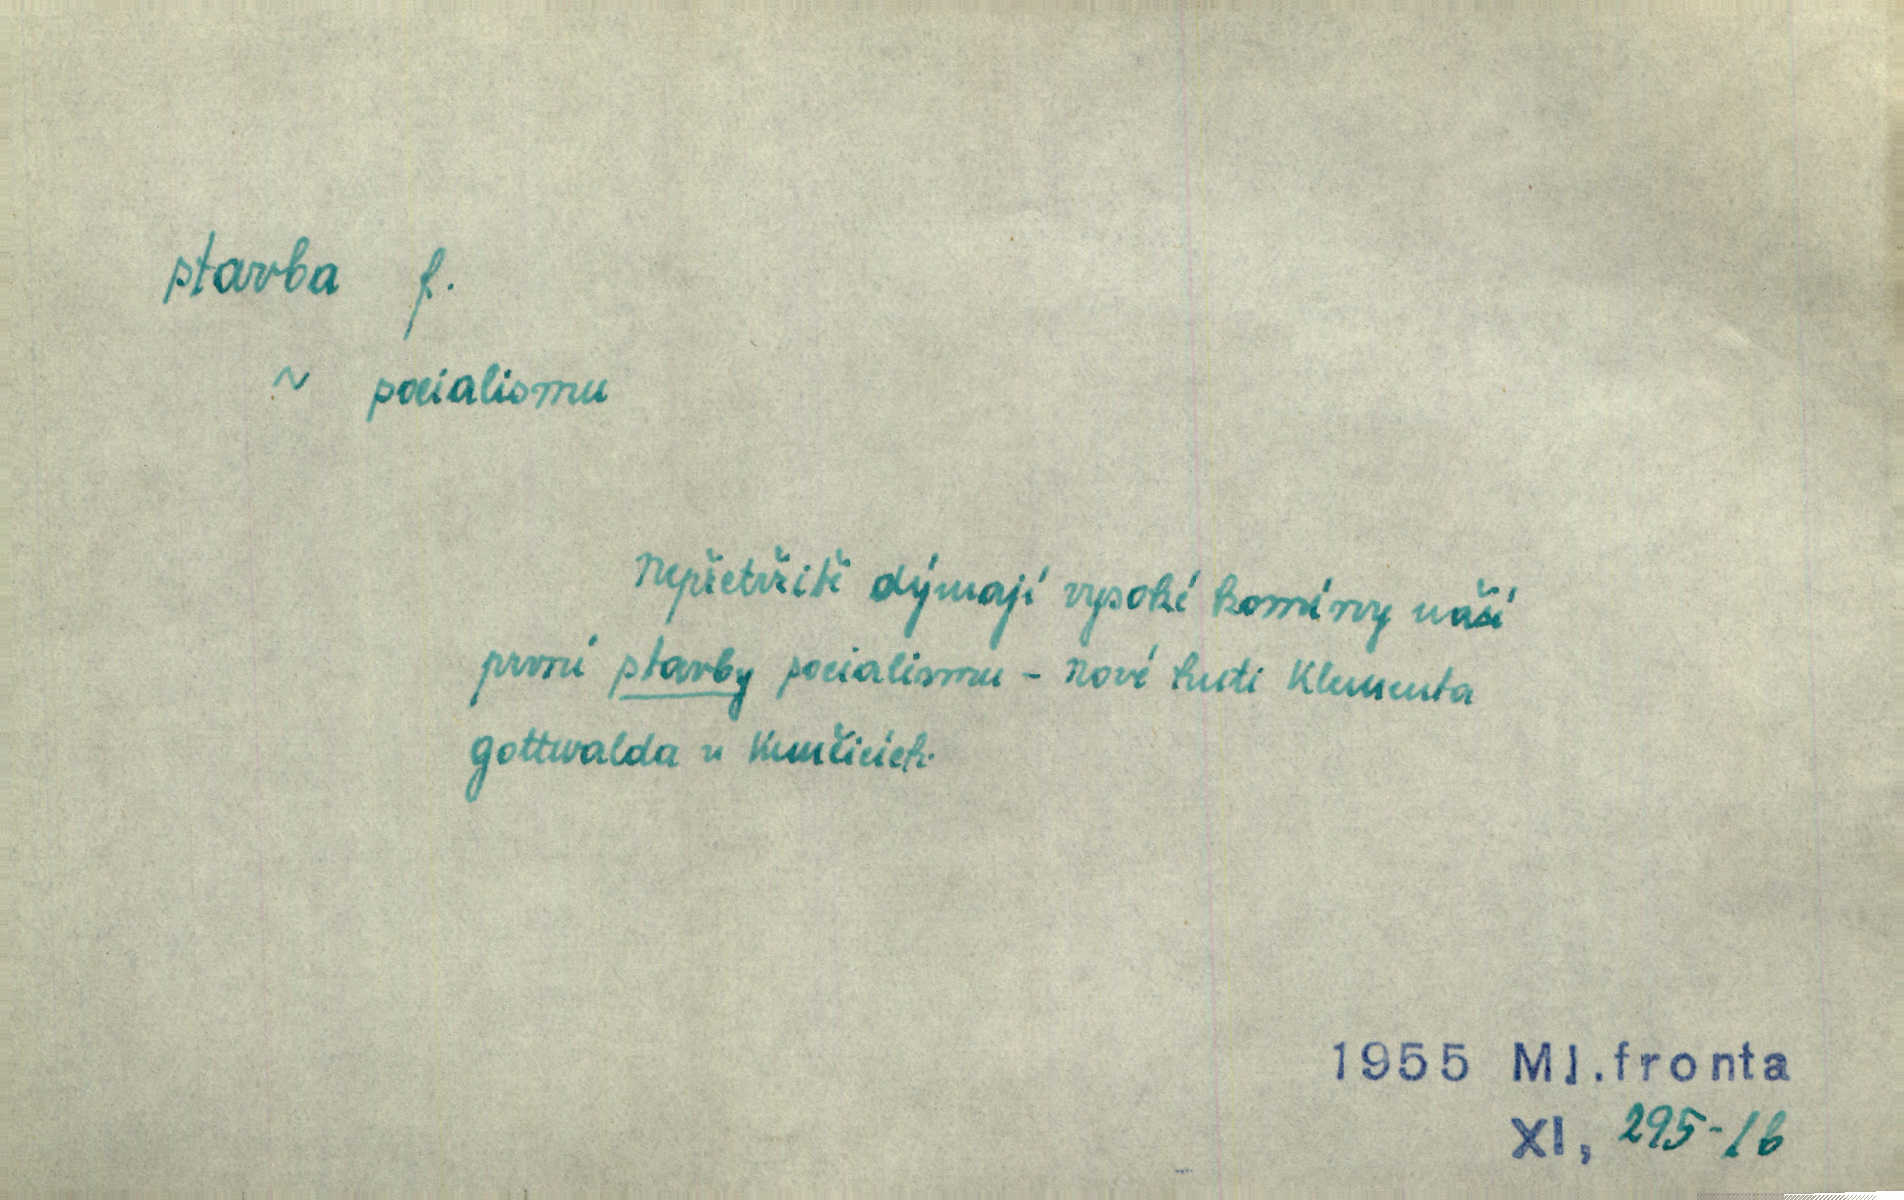 stavba f.
~ socialismu
Nepřetržitě dýmají vysoké komíny naší
první stavby socialismu - Nové huti Klementa
Gottwalda v Kunčicích.
1955 Ml.fronta
XI, 295-1b